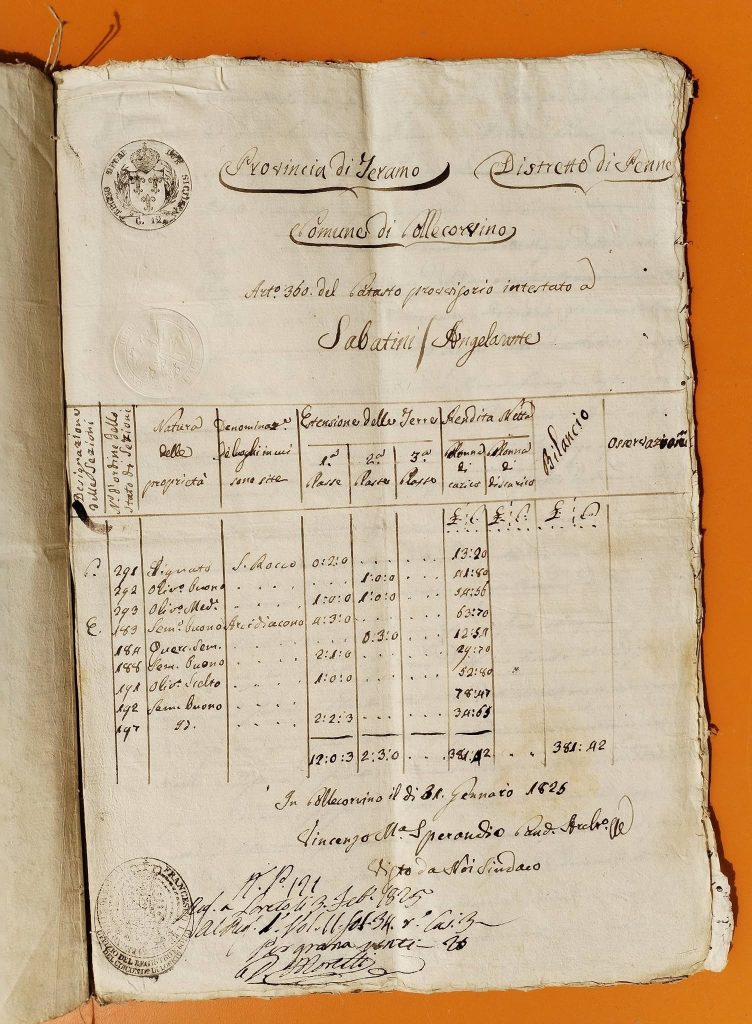 Provincia di Teramo Distretto di Penne
Comune di Collecorvino
Arto. 360. del Catasto provvisorio intestato à
Sabatini / Angelante
Designazione delle Sezioni
No. d'ordine dello Stato di Sezioni
Natura delle proprietà
Denominaz.e de luoghi in cui sono site
Estensione delle Terre
1.a Classe
2.a Classe
3.a Classe
Rendita Netta
Colonna di carico
Colonna di discarico
Bilancio
Osservazioni
291 Vignato S. Rocco 0:2:0 . . . . . . 13:20
292 Oliv.o buono . . . . 1:0:0 . . . 41:80
293 Oliv.o Med.o . . . . 1:0:0 1:0:0 . . . 54:56
E. 183 Sem.o buono Arcidiacono 4:3:0 . . . . . . 63:70
184 Querc. Sem. . . . . 0:3:0 . . . 12:54
188 Sem. buono . . . . 2:1:0 . . . . . . 29:70
191 Oliv.o Scelto . . . . 1:0:0 . . . . . . 52:80
192 Sem. buono . . . . 78:47
197 Id. . . . . 2:2:3 . . . . . . 34:65
12:0:3 2:3:0 . . . 381:42 . . 381:42
In Collecorvino il dì 31. Gennaro 1825
Vincenzo M.a Sperandio Canc. Arch.o
Visto da Noi Sindaco
N.o 121
Reg. a Loreto li 3. Feb.o 1825
Vol. 11. fol. 34. v.o Cas. 3
Per grana venti — 20
Moretti
G. 12